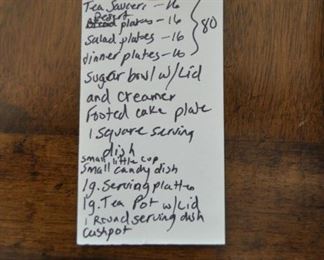 Tea Saucers - 16
Desert
Bread plates - 16
Salad plates - 16
dinner plates - 16
80
sugar bowl w/Lid
and creamer
Footed cake plate
1 square serving
dish
small little cup
small candy dish
1g. Serving platter
1g. Tea Pot w/Lid
1 Round serving dish